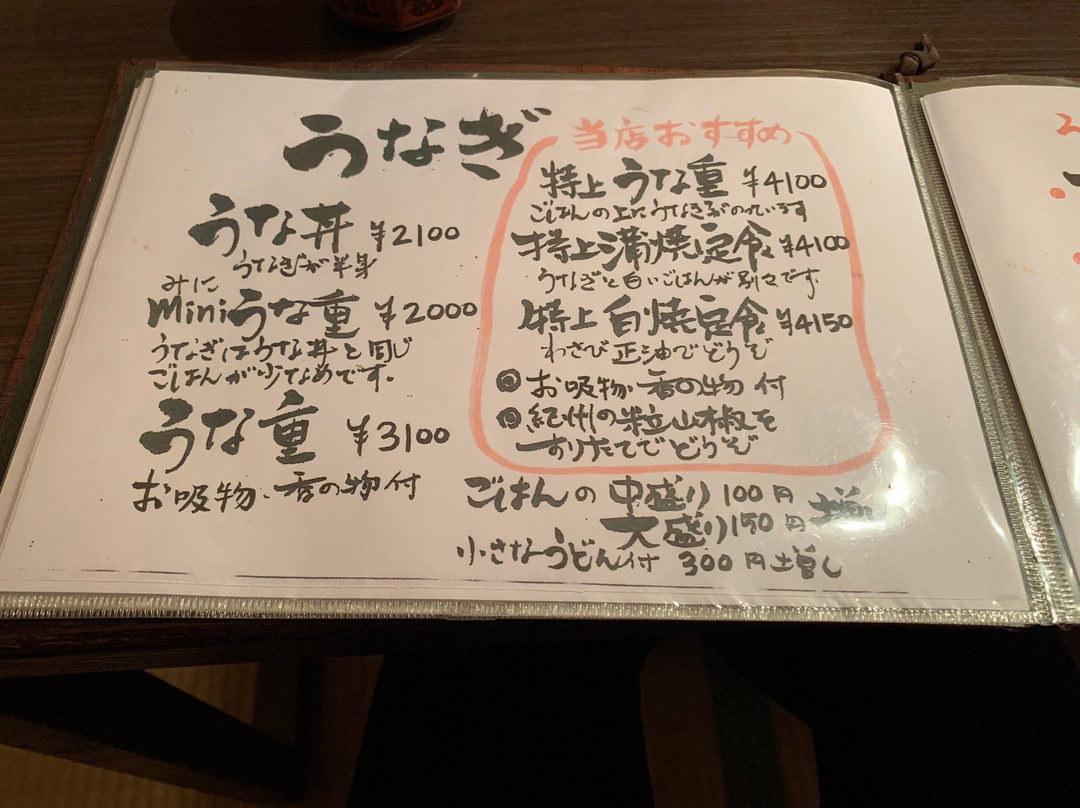 うなぎ
うな丼 ¥2100
うなぎが半身
みに
Miniうな重 ¥2000
うなぎはうな丼と同じ
ごはんが少なめです.
うな重 ¥3100
お吸物、香の物付
当店おすすめ
特上 うな重 ¥4100
ごはんの上にうなぎがのっています
特上蒲焼定食 ¥4100
うなぎと白いごはんが別々です
特上 白焼定食 ¥4150
わさび正油でどうぞ
◎お吸物、香の物付
◎紀州の粒山椒を
すりたてでどうぞ
ごはんの中盛り100円
大盛り150円増し
小さなうどん付 300円増し